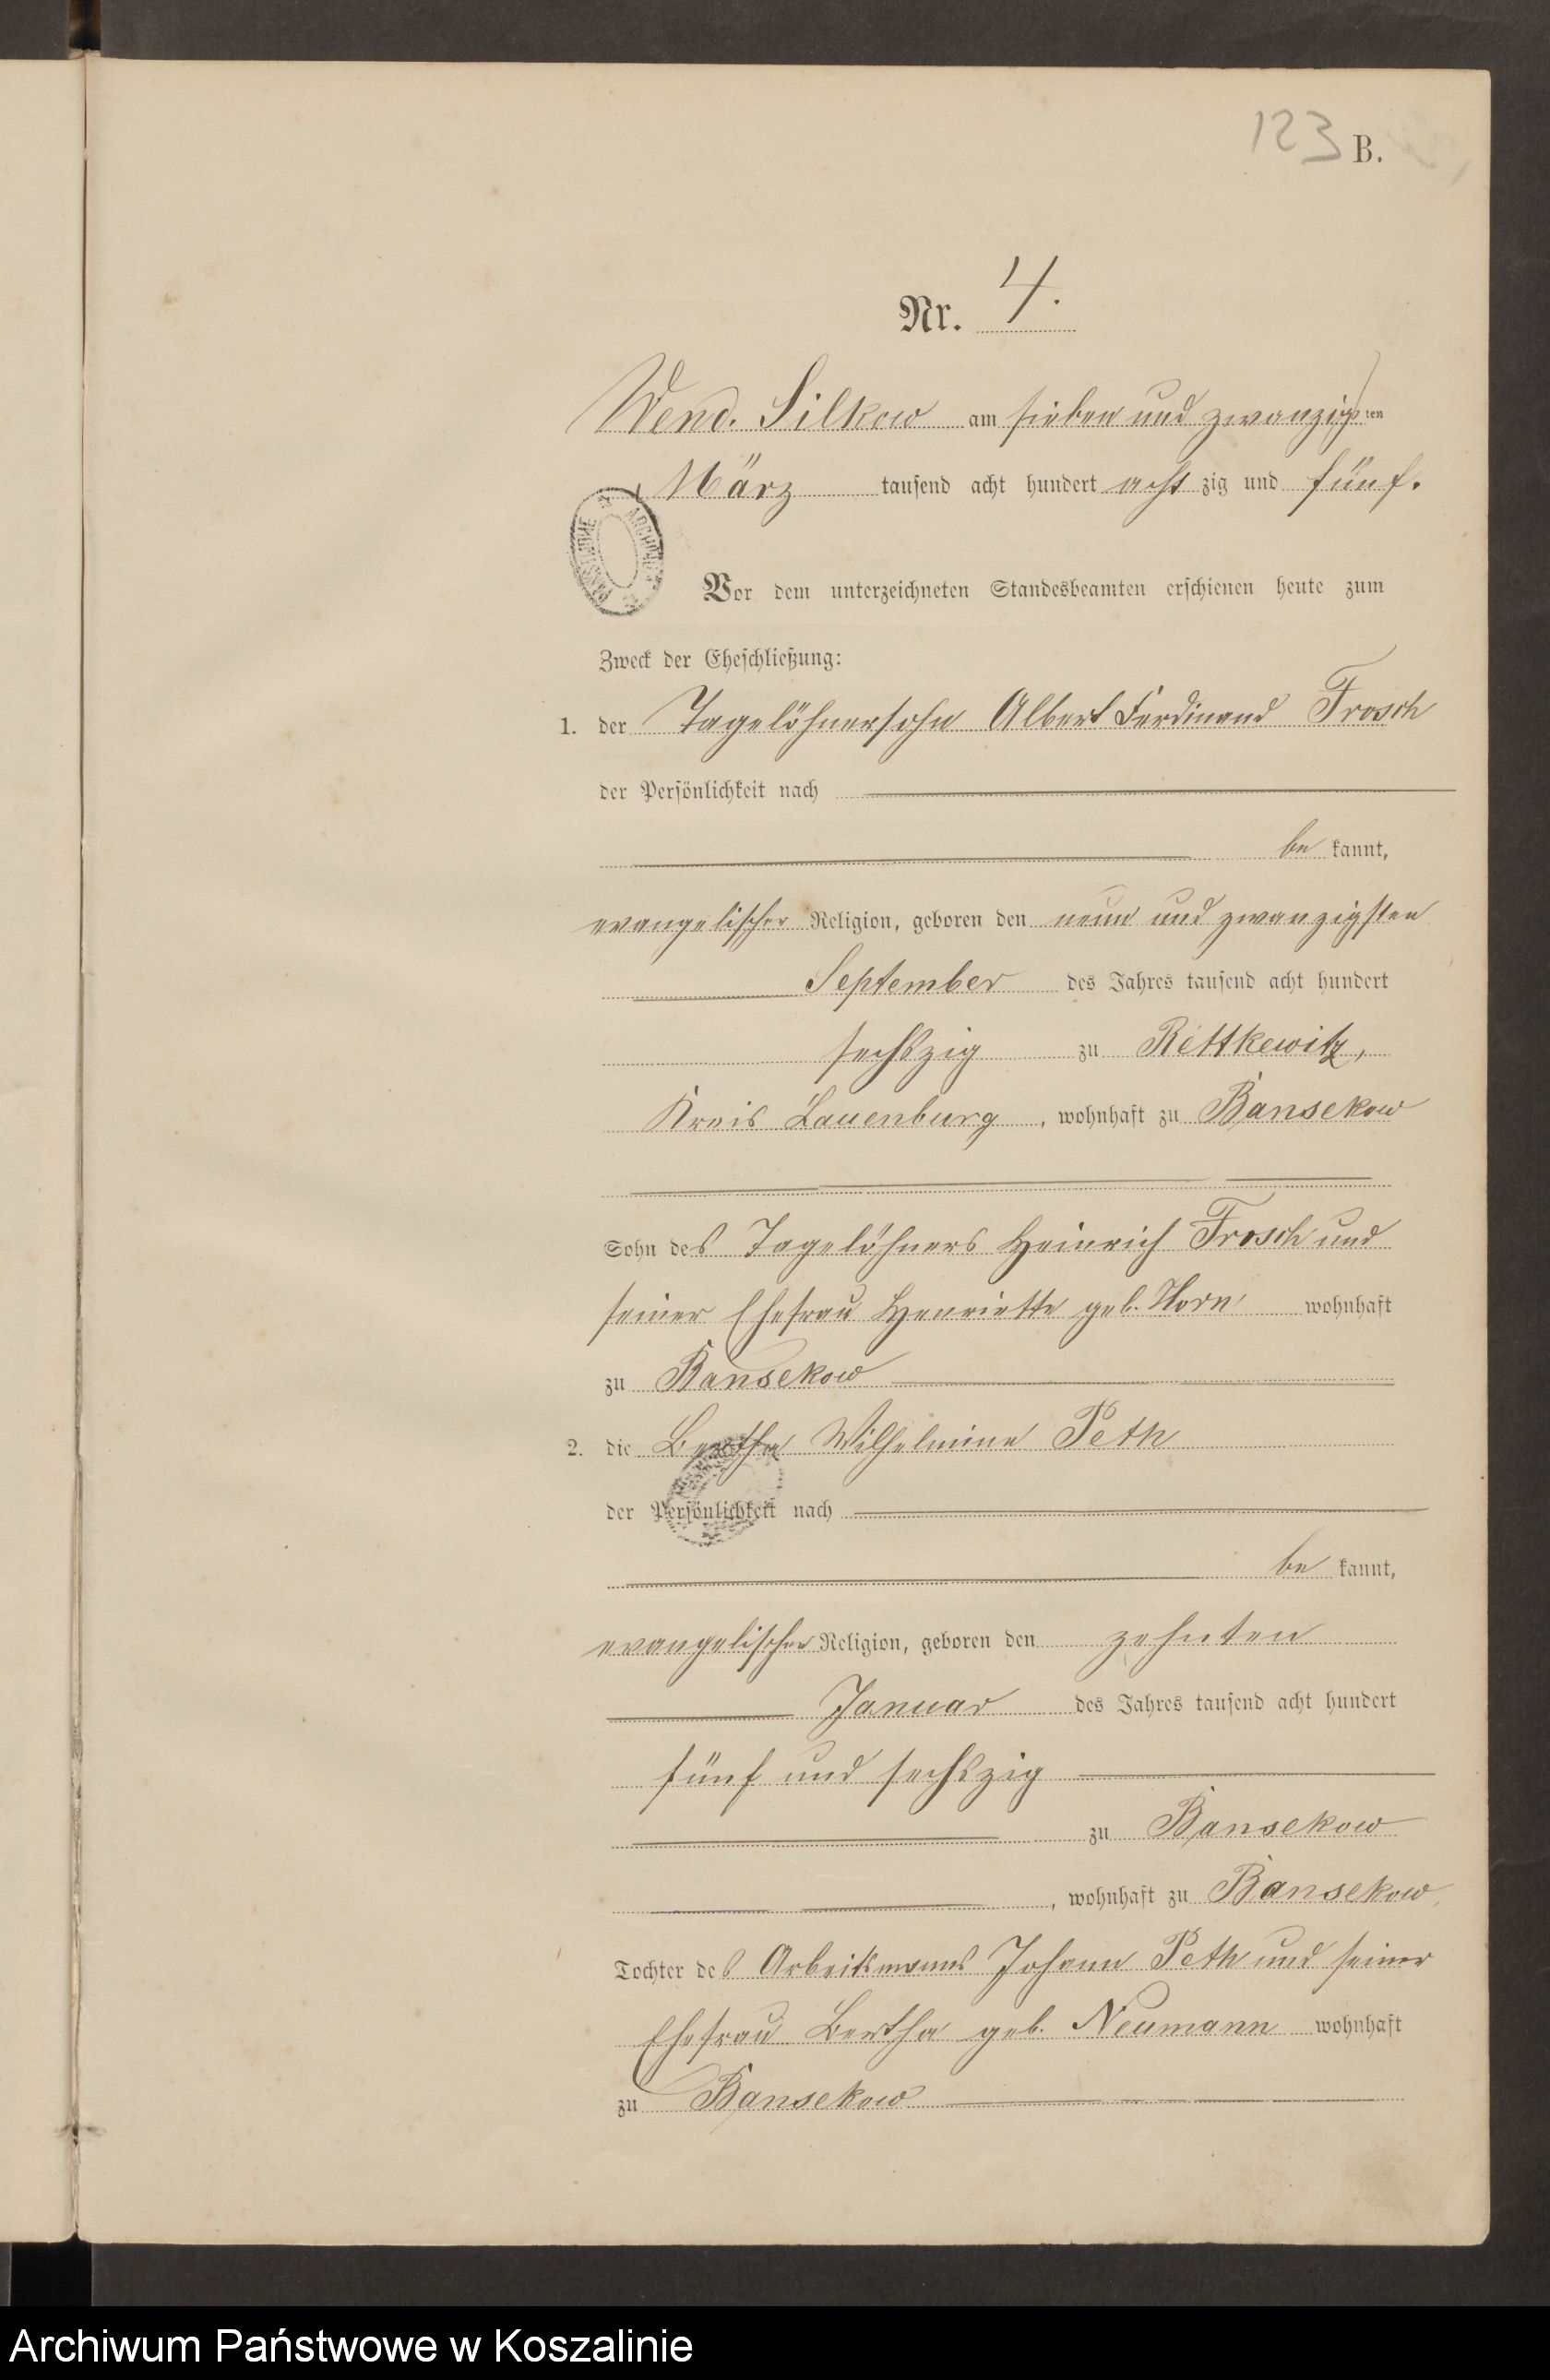 123 B.
Nr. 4.
Wend. Silkow am sieben und zwanzigsten
März tausend acht hundert acht zig und fünf.
Vor dem unterzeichneten Standesbeamten erschienen heute zum
Zweck der Eheschließung:
1. der Tagelöhnersohn Albert Ferdinand Frosch
der Persönlichkeit nach
be kannt,
evangelischer Religion, geboren den neun und zwanzigsten
September des Jahres tausend acht hundert
sechszig zu Rettkewitz,
Kreis Lauenburg, wohnhaft zu Bansekow
Sohn des Tagelöhners Heinrich Frosch und
seiner Ehefrau Henriette geb. Horn wohnhaft
zu Bansekow
2. die Bertha Wilhelmine Peth
der Persönlichkeit nach
be kannt,
evangelischer Religion, geboren den zehnten
Januar des Jahres tausend acht hundert
fünf und sechszig
zu Bansekow
, wohnhaft zu Bansekow,
Tochter des Arbeitsmanns Johann Peth und seiner
Ehefrau Bertha geb. Neumann wohnhaft
zu Bansekow
Archiwum Państwowe w Koszalinie